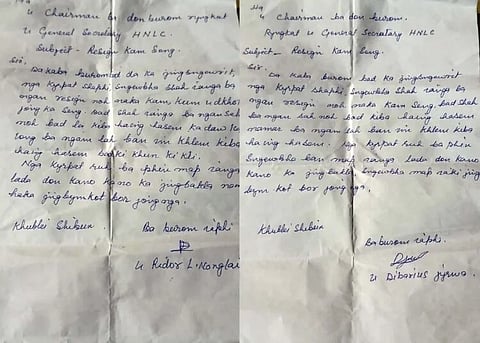 Ha
U Chairman ba don burom rynkat
U General Secretary HNLC
Subject - Resign Kam Seng.
Sir,
Da kaba burom bad da ka jingbangeit,
nga kyrpat shaphi Sngewbha Shah ranga ba
ngan resign noh na ka kam kum u dkhot
jong ka Seng. bad shah ranga ba ngan leh
noh bad ki kiba haing hasem
long ba ngan lah ban im khlem kiba
haing hasem
Nga kyrpat ruh ba phin map ranga
lada don kano kano ka jingbakla na
haka jingbymkot bor jong nga.
Khublei Shibun
Ba burom iaphi
U Ridor L. Nonglai
Ha
U Chairman ba don burom.
Rynkat U General Secretary HNLC
Subject - Resign Kam Seng.
Sir
Da kaba burom bad ka
nga kyrpat Shaphi Sngewbha Shah ranga ba
ngan resign noh na ka Kam Seng, bad Shah
ba ngan leh noh bad kiba haing hasem
namar ba ngan lah ban im khlem kiba
haing hasem. Nga kyrpat ruh ba phin
Sngewbha ban map ranga lada don kano
kano ka jingbakla Sngewbha map na ki jing
bym kot bor jong nga.
Khublei Shibun
Ba burom iaphi.
U Dibarius Jyrwa